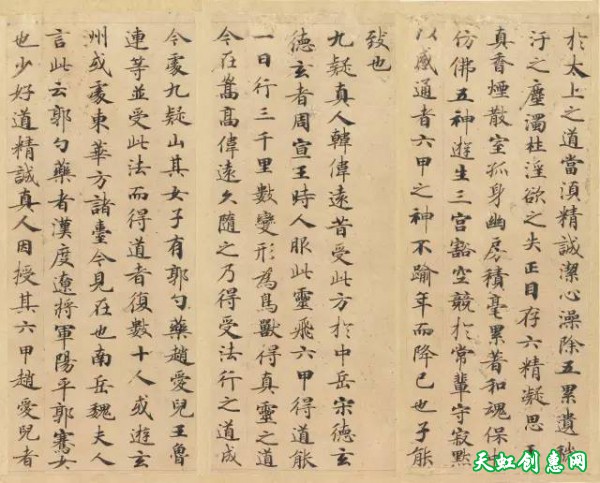 於太上之道當湏精誠潔心澡除五累遺穢
汙之塵濁杜淫欲之失正目存六精凝思玉
真香煙散室孤身幽房積毫累著和魂保中
仿佛五神遊生三宮豁空競於常輩守寂默
以感通者六甲之神不踰年而降已也子能
致也
九疑真人韓偉遠昔受此方於中岳宋德玄
德玄者周宣王時人服此靈飛六甲得道能
一日行三千里數變形為鳥獸得真靈之道
今在嵩高偉遠久隨之乃得受法行之道成
今處九疑山其女子有郭勺藥趙愛兒王魯
連等並受此法而得道者復數十人或遊玄
州或處東華方諸臺今見在也南岳魏夫人
言此云郭勺藥者漢度遼將軍陽平郭騫女
也少好道精誠真人因授其六甲趙愛兒者
天虹创惠网